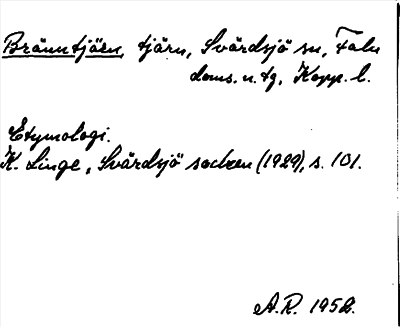 Bränntjärn, tjärn, Svärdsjö sn, Falu
doms. n. tg, Kopp. l.
Etymologi.
K. Linge, Svärdsjö socken (1929), s. 101.
A.R. 1952.